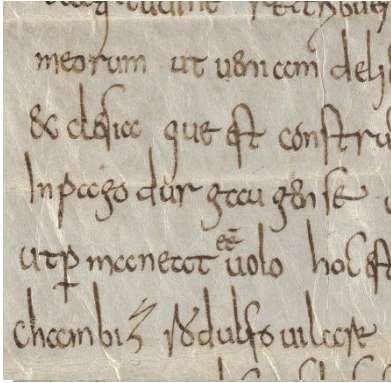 meorum ut ueniam deli
&clesia que est constru
In pago durgaugense
utꝑmaneat eē uolo hoc est
chambiz rodulfo uilare